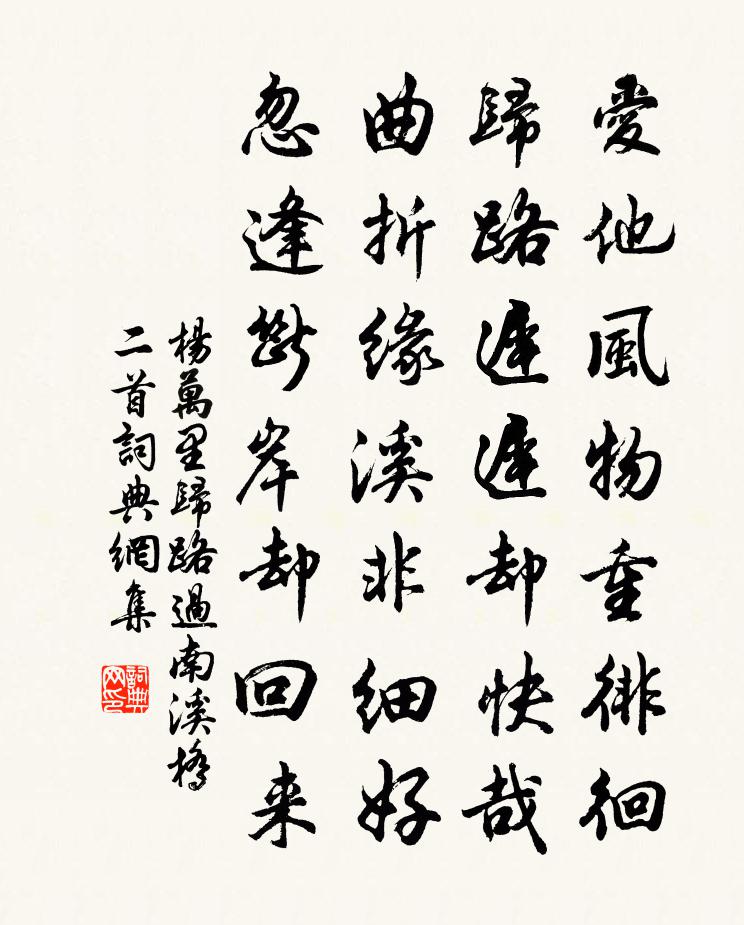 愛他風物重徘徊
歸路遲遲却快哉
曲折緣溪非細好
忽逢斷岸却回来
楊萬里歸路過南溪橋
二首詞典網集
詞典网印